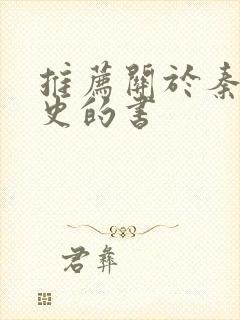 推薦關於秦
史的書
君彝